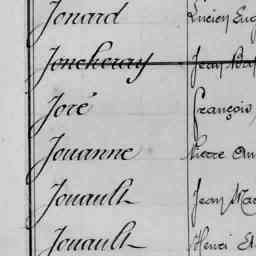 Jonard Lucien Eug
Joncheray Jean Bap
Joré François,
Jouanne Pierre Am
Jouault Jean Mar
Jouault Henri Et